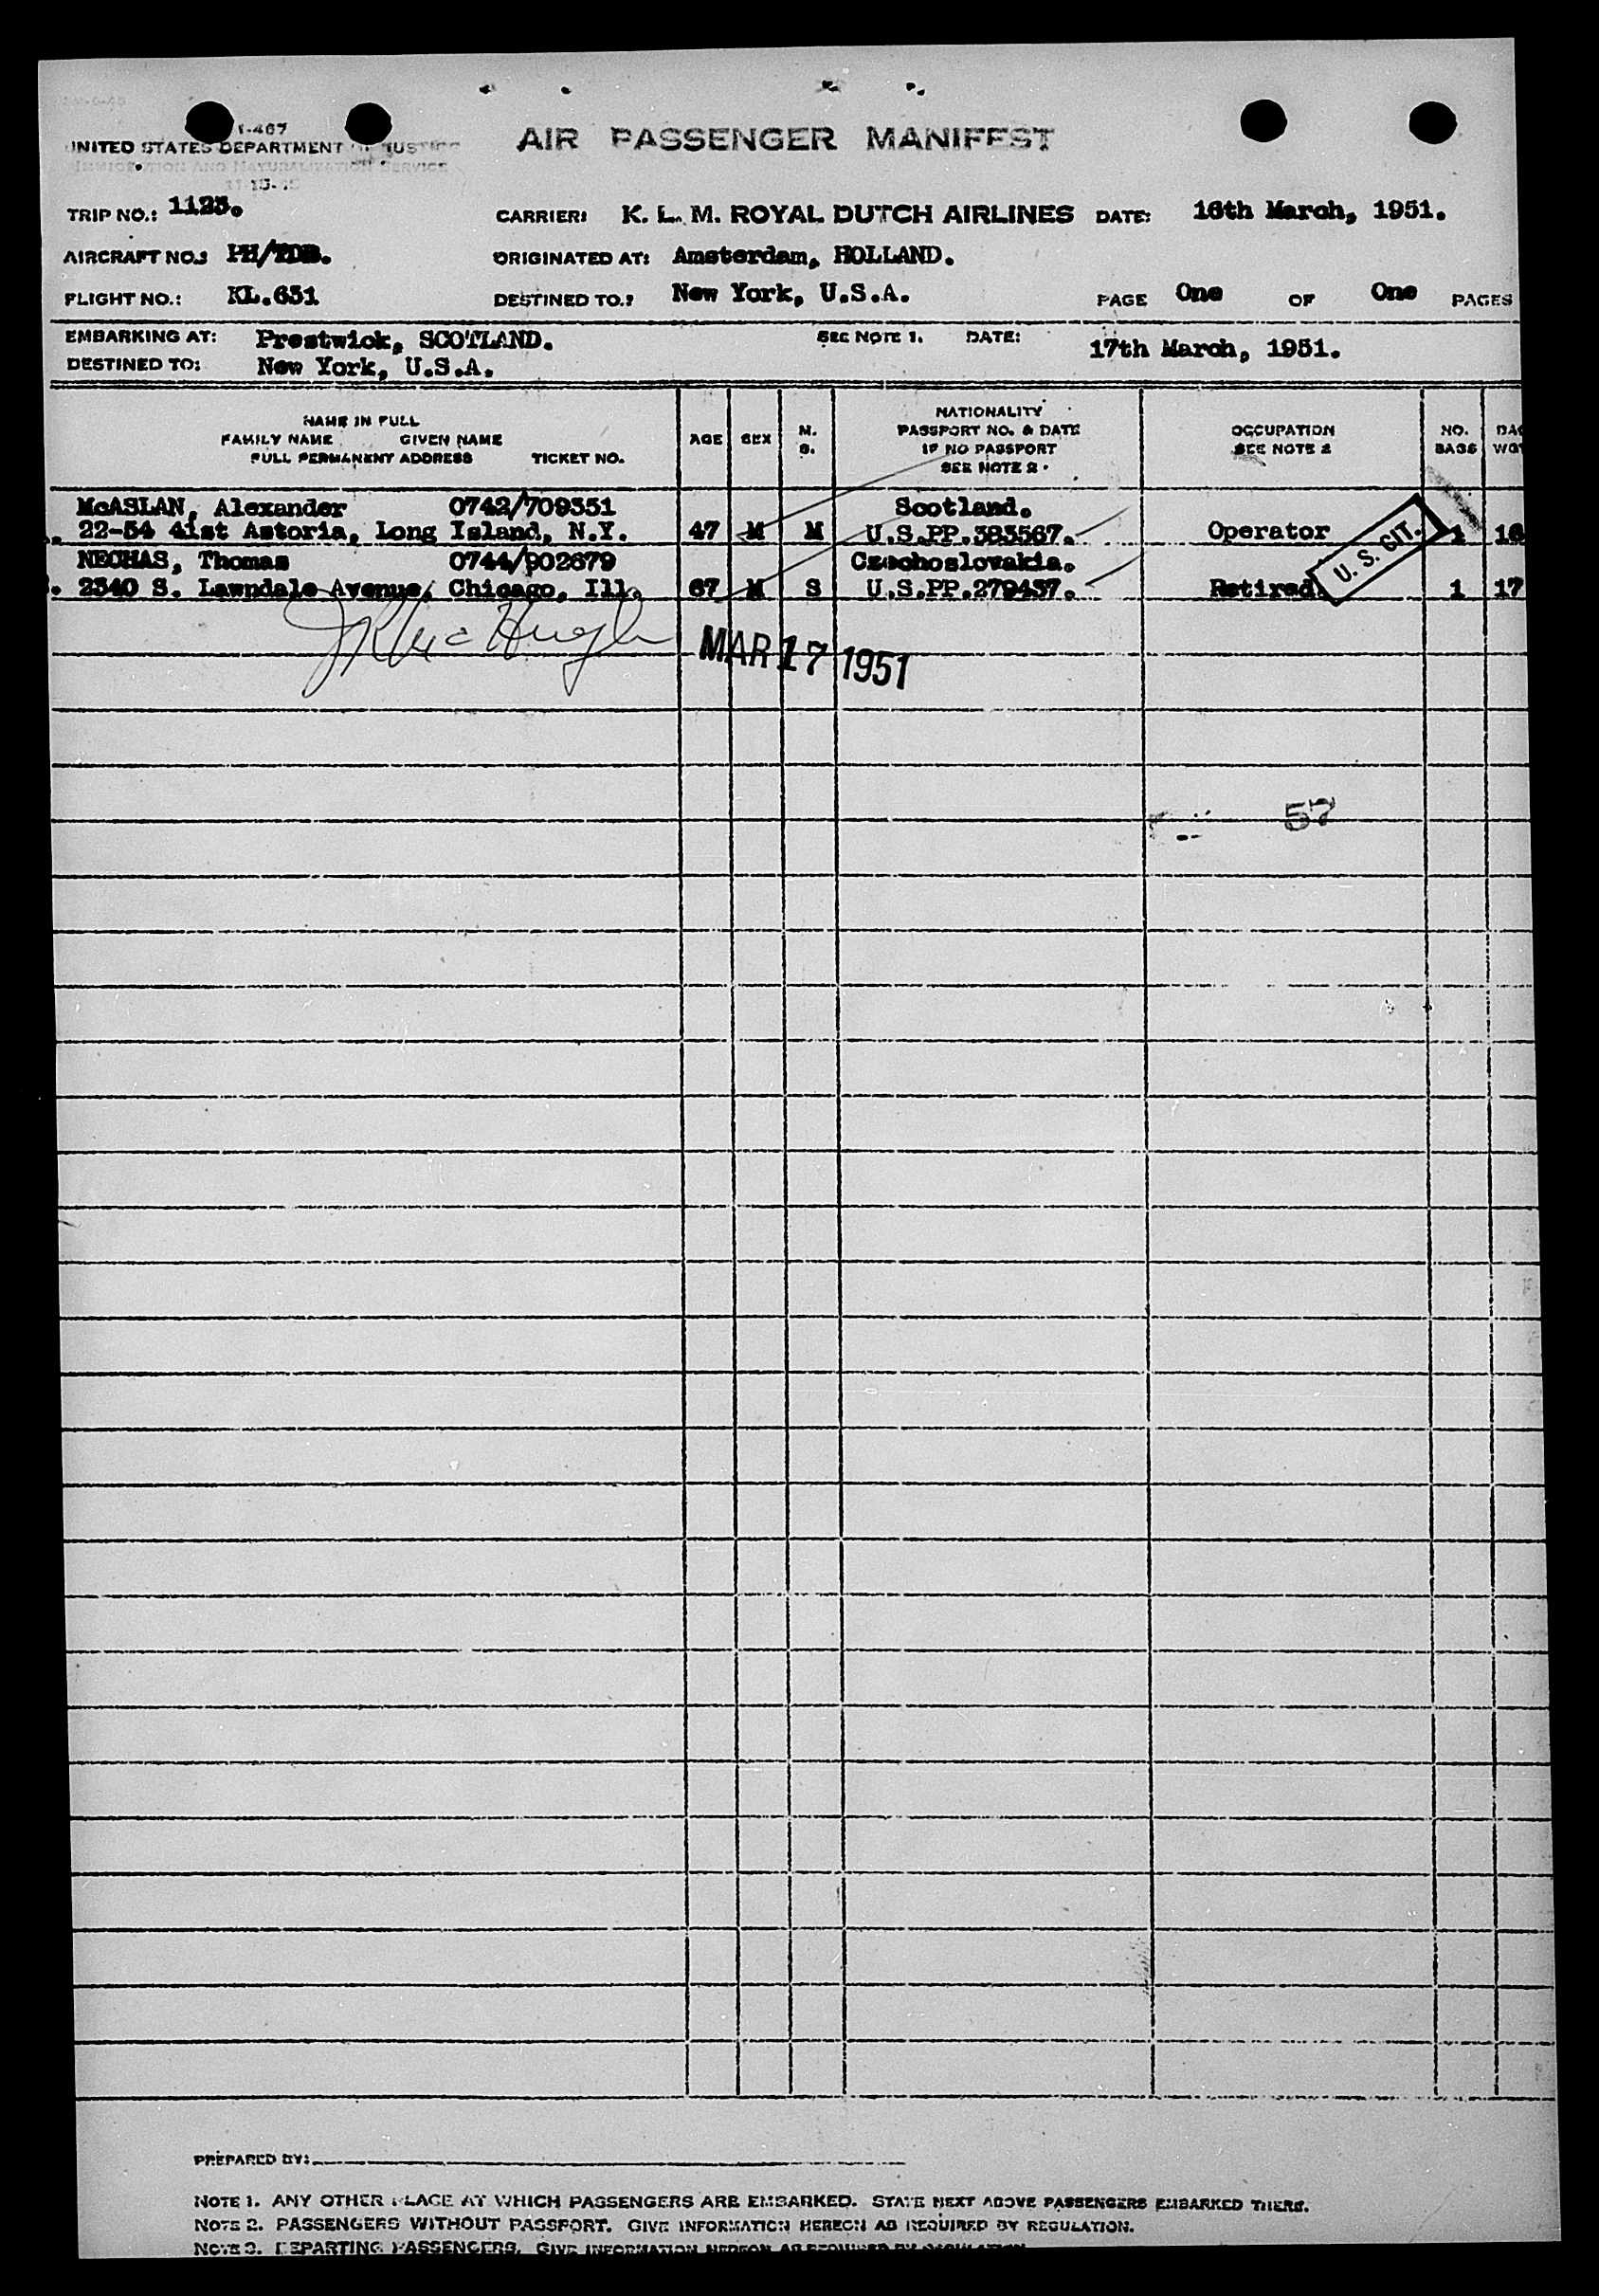 I-467
UNITED STATES DEPARTMENT OF JUSTICE
IMMIGRATION AND NATURALIZATION SERVICE
AIR PASSENGER MANIFEST
TRIP NO.: 1123.
CARRIER: K. L. M. ROYAL DUTCH AIRLINES DATE: 16th March, 1951.
AIRCRAFT NO.: PH/TDB.
ORIGINATED AT: Amsterdam, HOLLAND.
FLIGHT NO.: KL.631
DESTINED TO.: New York, U.S.A.
PAGE One OF One PAGES
EMBARKING AT: Prestwick, SCOTLAND.
SEE NOTE 1. DATE: 17th March, 1951.
DESTINED TO: New York, U.S.A.
NAME IN FULL
FAMILY NAME GIVEN NAME
FULL PERMANENT ADDRESS TICKET NO.
AGE
SEX
M.
S.
NATIONALITY
PASSPORT NO. & DATE
IF NO PASSPORT
SEE NOTE 2
OCCUPATION
SEE NOTE 2
NO.
BAGS
BAG
WGT
McASLAN, Alexander 0742/709351 Scotland.
22-54 41st Astoria, Long Island, N.Y. 47 M M U.S.PP.383567. Operator 1 16
NECHAS, Thomas 0744/902679 Czechoslovakia.
2340 S. Lawndale Avenue, Chicago, Ill. 67 M S U.S.PP.279437. Retired. 1 17
U. S. CIT.
MAR 17 1951
57
PREPARED BY:
NOTE 1. ANY OTHER PLACE AT WHICH PASSENGERS ARE EMBARKED. STATE NEXT ABOVE PASSENGERS EMBARKED THERE.
NOTE 2. PASSENGERS WITHOUT PASSPORT. GIVE INFORMATION HEREON AS REQUIRED BY REGULATION.
NOTE 3. DEPARTING PASSENGERS. GIVE INFORMATION HEREON AS REQUIRED BY REGULATION.